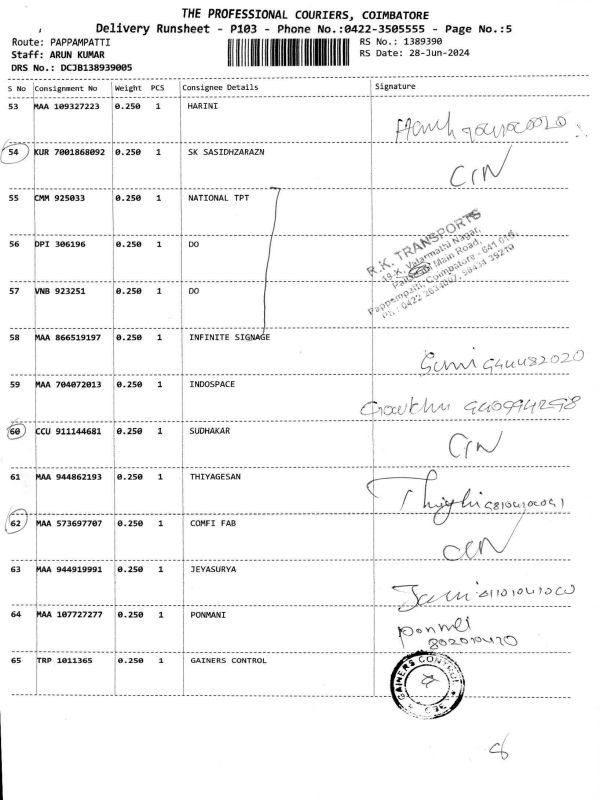 THE PROFESSIONAL COURIERS, COIMBATORE
Delivery Runsheet - P103 - Phone No.:0422-3505555 - Page No.:5
Route: PAPPAMPATTI RS No.: 1389390
Staff: ARUN KUMAR RS Date: 28-Jun-2024
DRS No.: DCJB138939005
S No Consignment No Weight PCS Consignee Details Signature
53 MAA 109327223 0.250 1 HARINI
54 KUR 7001868092 0.250 1 SK SASIDHZARAZN
55 CMM 925033 0.250 1 NATIONAL TPT
R.K. TRANSPORTS
19-K, Valarmathi Nagar,
Main Road,
Pappampatti, Coimbatore - 641 016.
56 DPI 306196 0.250 1 DO
57 VNB 923251 0.250 1 DO
58 MAA 866519197 0.250 1 INFINITE SIGNAGE
59 MAA 704072013 0.250 1 INDOSPACE
60 CCU 911144681 0.250 1 SUDHAKAR
61 MAA 944862193 0.250 1 THIYAGESAN
62 MAA 573697707 0.250 1 COMFI FAB
63 MAA 944919991 0.250 1 JEYASURYA
64 MAA 107727277 0.250 1 PONMANI
65 TRP 1011365 0.250 1 GAINERS CONTROL
GAINERS CONTROL